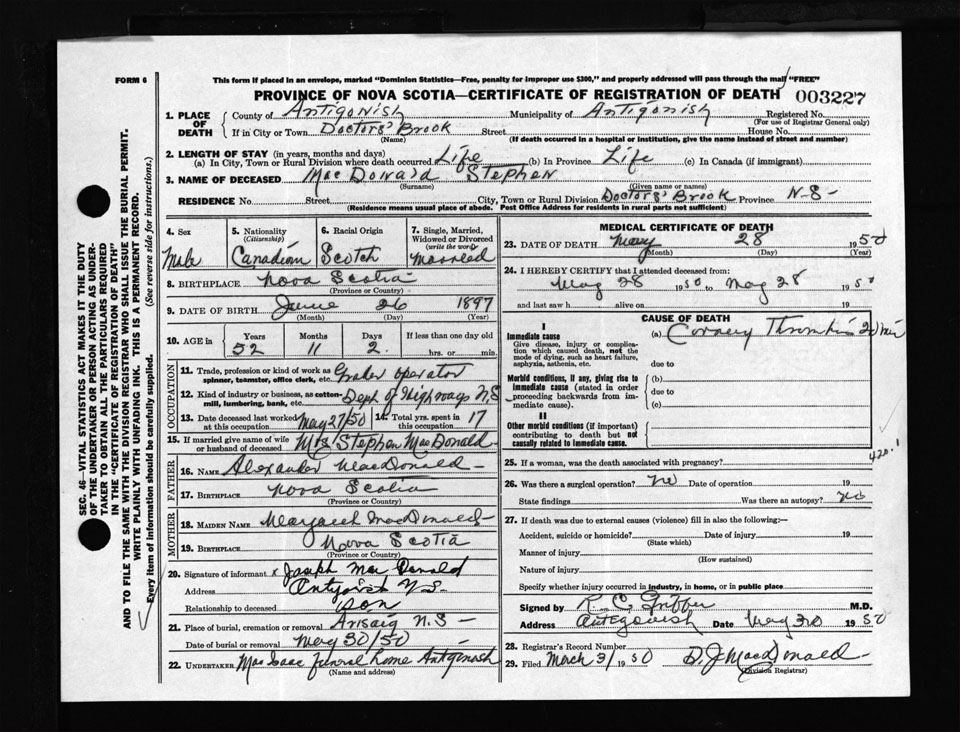 FORM 6
This form if placed in an envelope, marked "Dominion Statistics—Free, penalty for improper use $300," and properly addressed will pass through the mail "FREE"
PROVINCE OF NOVA SCOTIA—CERTIFICATE OF REGISTRATION OF DEATH 003227
SEC. 46—VITAL STATISTICS ACT MAKES IT THE DUTY
OF THE UNDERTAKER OR PERSON ACTING AS UNDER-
TAKER TO OBTAIN ALL THE PARTICULARS REQUIRED
IN THE "CERTIFICATE OF REGISTRATION OF DEATH"
AND TO FILE THE SAME WITH THE DIVISION REGISTRAR WHO SHALL ISSUE THE BURIAL PERMIT.
WRITE PLAINLY WITH UNFADING INK. THIS IS A PERMANENT RECORD.
Every item of information should be carefully supplied. (See reverse side for instructions.)
1. PLACE OF DEATH
County of Antigonish Municipality of Antigonish Registered No.
(For use of Registrar General only)
If in City or Town Doctors' Brook Street House No.
(Name) (If death occurred in a hospital or institution, give the name instead of street and number)
2. LENGTH OF STAY (in years, months and days)
(a) In City, Town or Rural Division where death occurred Life (b) In Province Life (c) In Canada (if immigrant)
3. NAME OF DECEASED MacDonald Stephen
(Surname) (Given name or names)
RESIDENCE No. Street City, Town or Rural Division Doctors' Brook Province N-S-
(Residence means usual place of abode. Post Office Address for residents in rural parts not sufficient)
4. Sex Male
5. Nationality (Citizenship) Canadian
6. Racial Origin Scotch
7. Single, Married, Widowed or Divorced (write the word) Married
8. BIRTHPLACE Nova Scotia
(Province or Country)
9. DATE OF BIRTH June 26 1897
(Month) (Day) (Year)
10. AGE in Years 52 Months 11 Days 2 If less than one day old hrs. or min.
OCCUPATION
11. Trade, profession or kind of work as spinner, teamster, office clerk, etc. Grader operator
12. Kind of industry or business, as cotton-mill, lumbering, bank, etc. Dept of Highways N.S
13. Date deceased last worked at this occupation May 27/50
14. Total yrs. spent in this occupation 17
15. If married give name of wife or husband of deceased Mrs Stephen MacDonald
FATHER
16. NAME Alexander MacDonald
17. BIRTHPLACE Nova Scotia
(Province or Country)
MOTHER
18. MAIDEN NAME Margaret MacDonald
19. BIRTHPLACE Nova Scotia
(Province or Country)
20. Signature of informant x Joseph MacDonald
Address Antigonish N-S-
Relationship to deceased son
21. Place of burial, cremation or removal Arisaig N.S
Date of burial or removal May 30/50
22. UNDERTAKER MacIsaac funeral home Antigonish
(Name and address)
MEDICAL CERTIFICATE OF DEATH
23. DATE OF DEATH May 28 1950
(Month) (Day) (Year)
24. I HEREBY CERTIFY that I attended deceased from:
May 28 1950 to May 28 1950
and last saw h alive on 19
CAUSE OF DEATH
I
Immediate cause (a) 20 min
Give disease, injury or complica-
tion which caused death, not the
mode of dying, such as heart failure,
asphyxia, asthenia, etc. due to
Morbid conditions, if any, giving rise to (b)
immediate cause (stated in order due to
proceeding backwards from im-
mediate cause). (c)
II
Other morbid conditions (if important)
contributing to death but not
causally related to immediate cause.
420.1
25. If a woman, was the death associated with pregnancy?
26. Was there a surgical operation? no Date of operation 19
State findings Was there an autopsy? no
27. If death was due to external causes (violence) fill in also the following:—
Accident, suicide or homicide? Date of injury 19
(State which)
Manner of injury
(How sustained)
Nature of injury
Specify whether injury occurred in industry, in home, or in public place
Signed by M.D.
Address Antigonish Date May 30 1950
28. Registrar's Record Number
29. Filed March 31 1950 D. J. MacDonald
(Division Registrar)